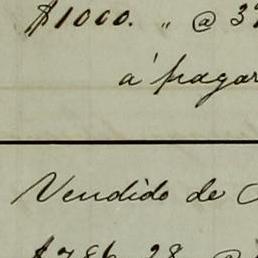 $1000. " @ 3
á pagar
Vendido de
$786.28 @